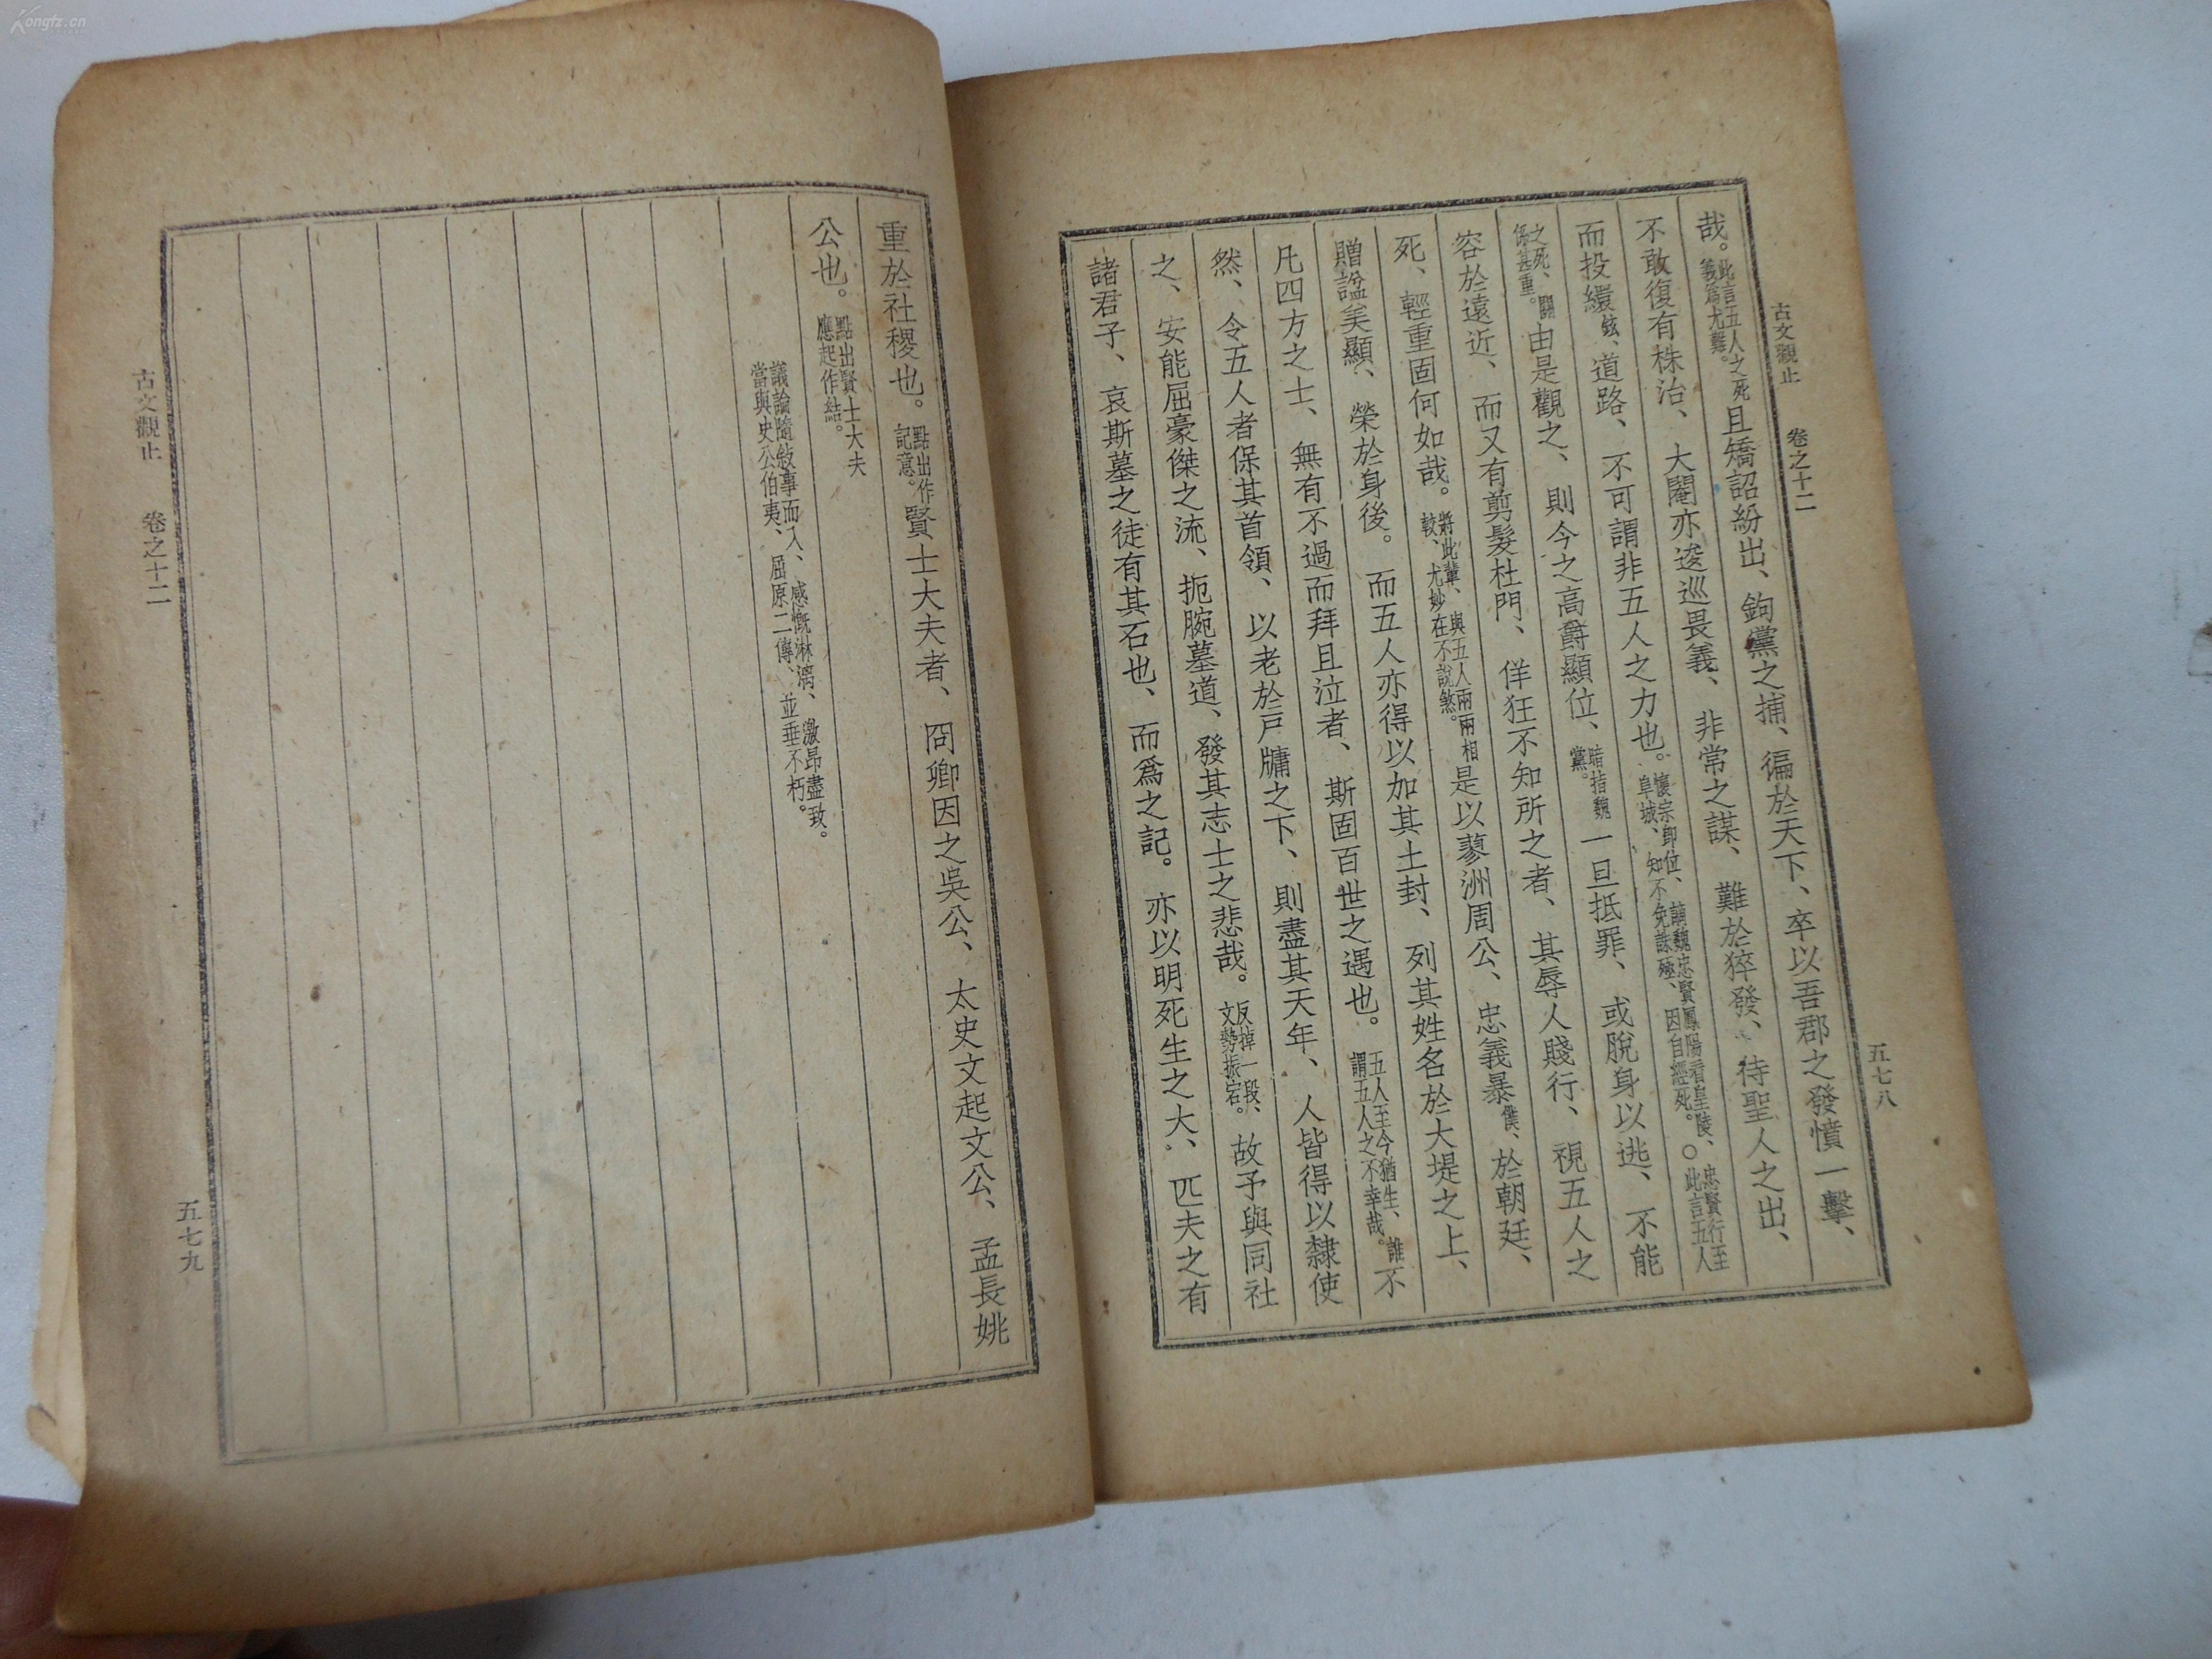 Kongfz.cn
古文觀止 卷之十二 五七八
哉。此言五人之死義爲尤難。且矯詔紛出、鉤黨之捕、徧於天下、卒以吾郡之發憤一擊、
不敢復有株治、大閹亦逡巡畏義、非常之謀、難於猝發、待聖人之出、
而投繯絃、道路、不可謂非五人之力也。懷宗卽位、謫魏忠賢鳳陽看皇陵、忠賢行至阜城、知不免誅殛、因自經死。○此言五人
之死、關係甚重。由是觀之、則今之高爵顯位、暗指魏黨。一旦抵罪、或脫身以逃、不能
容於遠近、而又有剪髮杜門、佯狂不知所之者、其辱人賤行、視五人之
死、輕重固何如哉。將此輩、與五人兩兩相較、尤妙在不說煞。是以蓼洲周公、忠義暴僕、於朝廷、
贈諡美顯、榮於身後。而五人亦得以加其土封、列其姓名於大堤之上、
凡四方之士、無有不過而拜且泣者、斯固百世之遇也。五人至今猶生、誰謂五人之不幸哉。不
然、令五人者保其首領、以老於戸牖之下、則盡其天年、人皆得以隸使
之、安能屈豪傑之流、扼腕墓道、發其志士之悲哉。反掉一段、文勢振宕。故予與同社
諸君子、哀斯墓之徒有其石也、而爲之記。亦以明死生之大、匹夫之有
重於社稷也。點出作記意。賢士大夫者、冏卿因之吳公、太史文起文公、孟長姚
公也。點出賢士大夫應起作結。
議論隨敍事而入、感慨淋漓、激昂盡致。
當與史公伯夷、屈原二傳、並垂不朽。
古文觀止 卷之十二 五七九